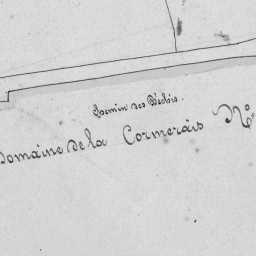 Chemin des
Domaine de la Cormerais No